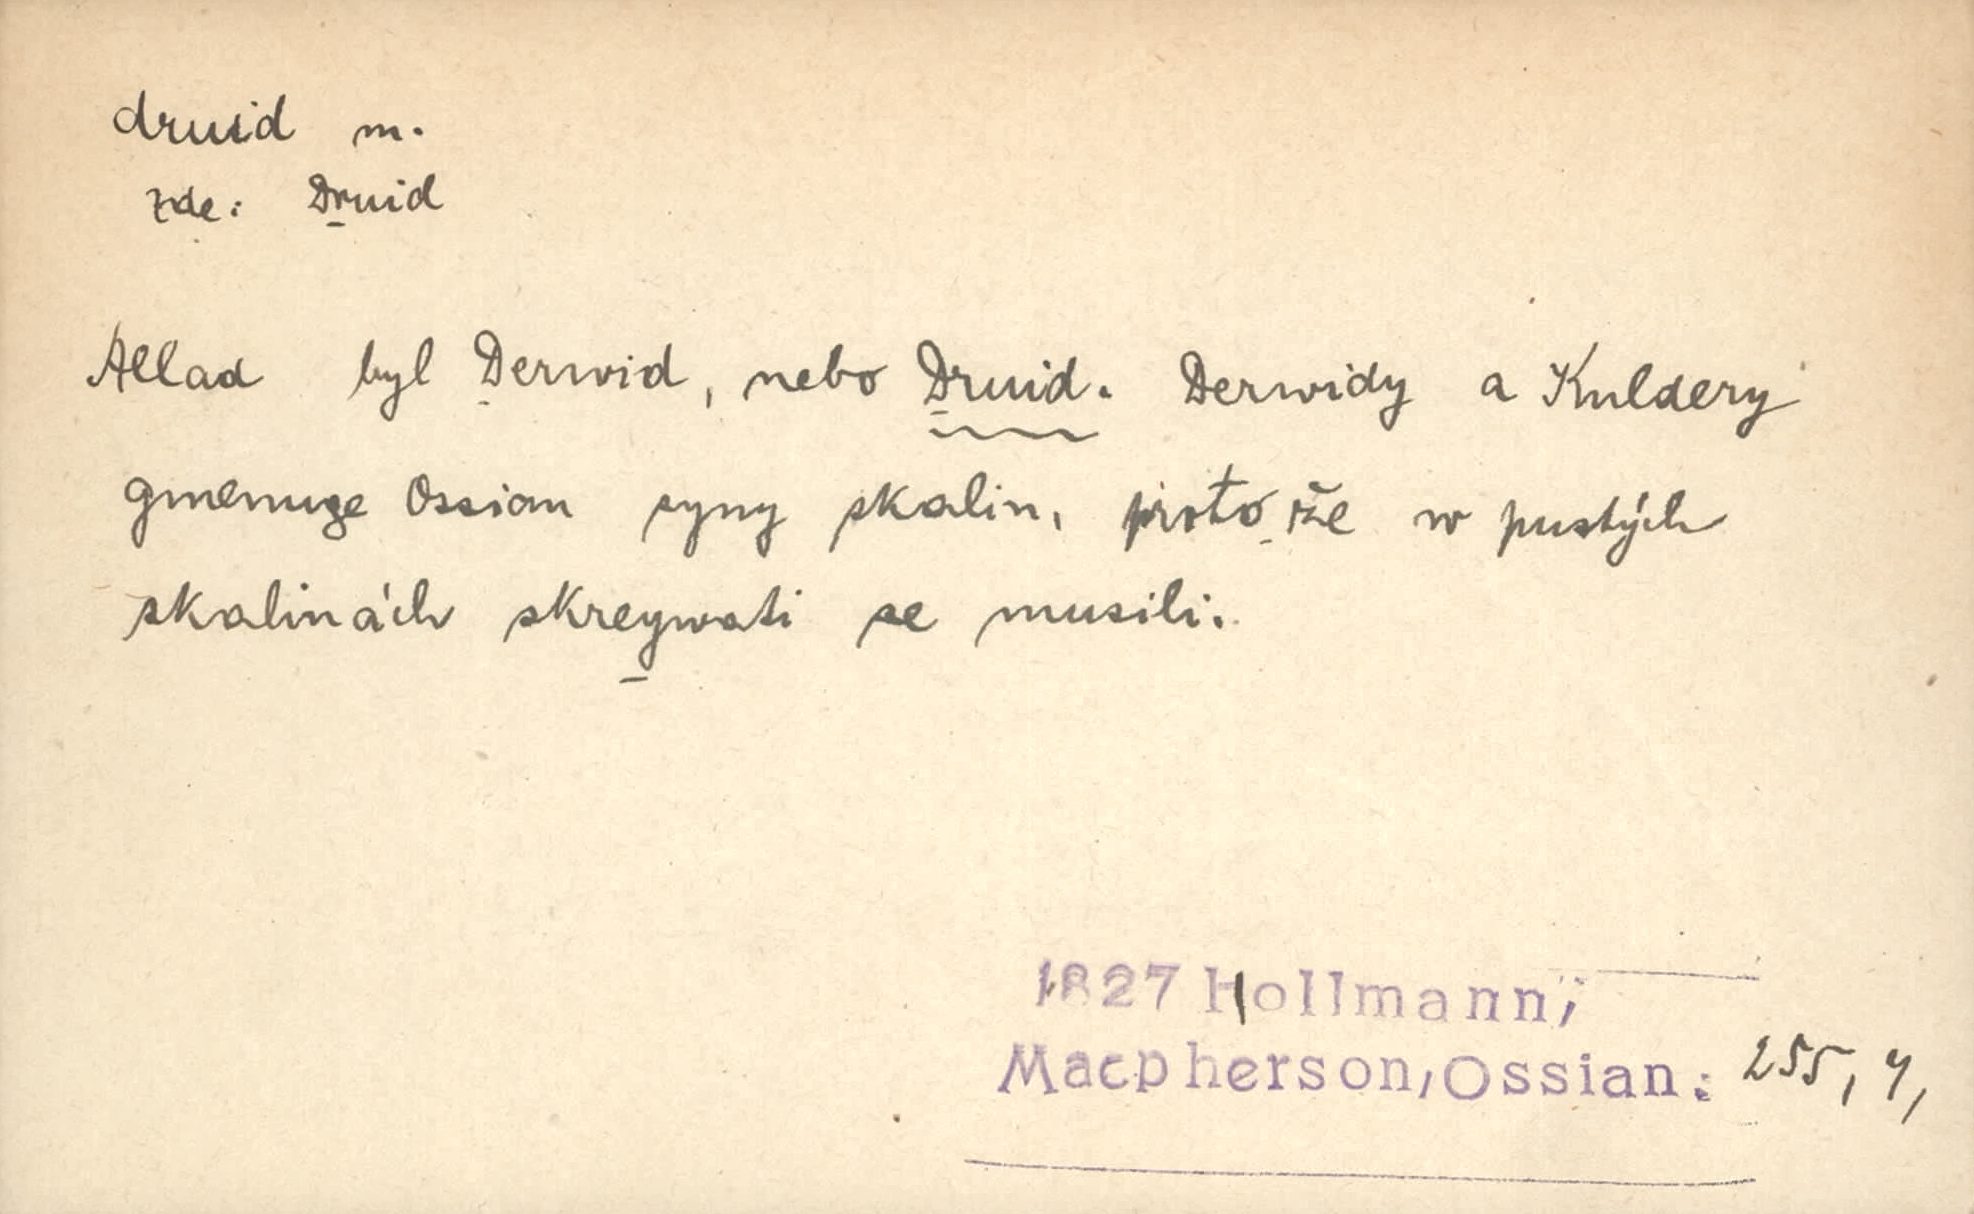 druid m.
zde: Druid
Allad byl Derwid, nebo Druid. Derwidy a Kuldery
gmenuge Ossian syny skalin, proto že w pustých
skalinách skreywati se musili.
1827 Hollmann;
Macpherson, Ossian: 255, 4,